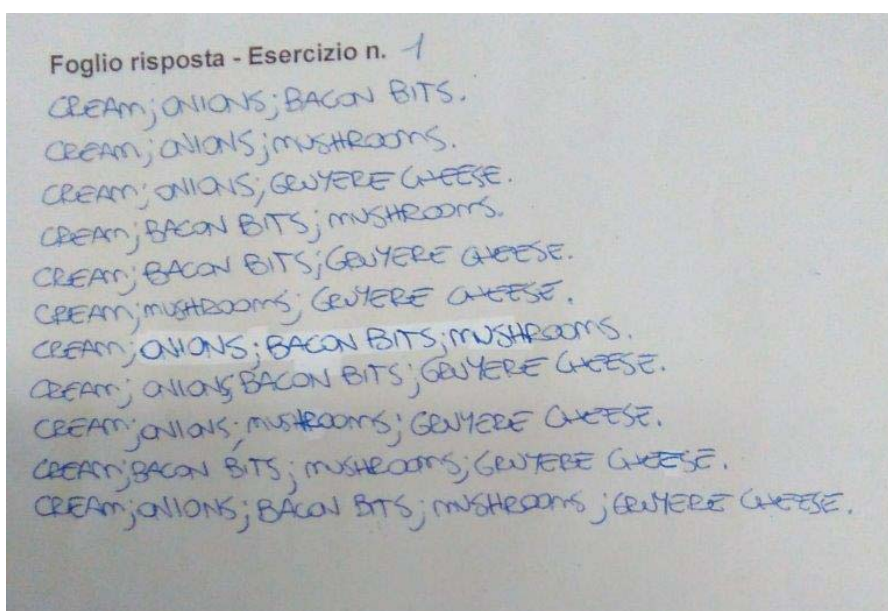 Foglio risposta - Esercizio n. 1
CREAM; ONIONS; BACON BITS.
CREAM; ONIONS; MUSHROOMS.
CREAM; ONIONS; GRUYERE CHEESE.
CREAM; BACON BITS; MUSHROOMS.
CREAM; BACON BITS; GRUYERE CHEESE.
CREAM; MUSHROOMS; GRUYERE CHEESE.
CREAM; ONIONS; BACON BITS; MUSHROOMS.
CREAM; ONIONS; BACON BITS; GRUYERE CHEESE.
CREAM; ONIONS; MUSHROOMS; GRUYERE CHEESE.
CREAM; BACON BITS; MUSHROOMS; GRUYERE CHEESE.
CREAM; ONIONS; BACON BITS; MUSHROOMS; GRUYERE CHEESE.